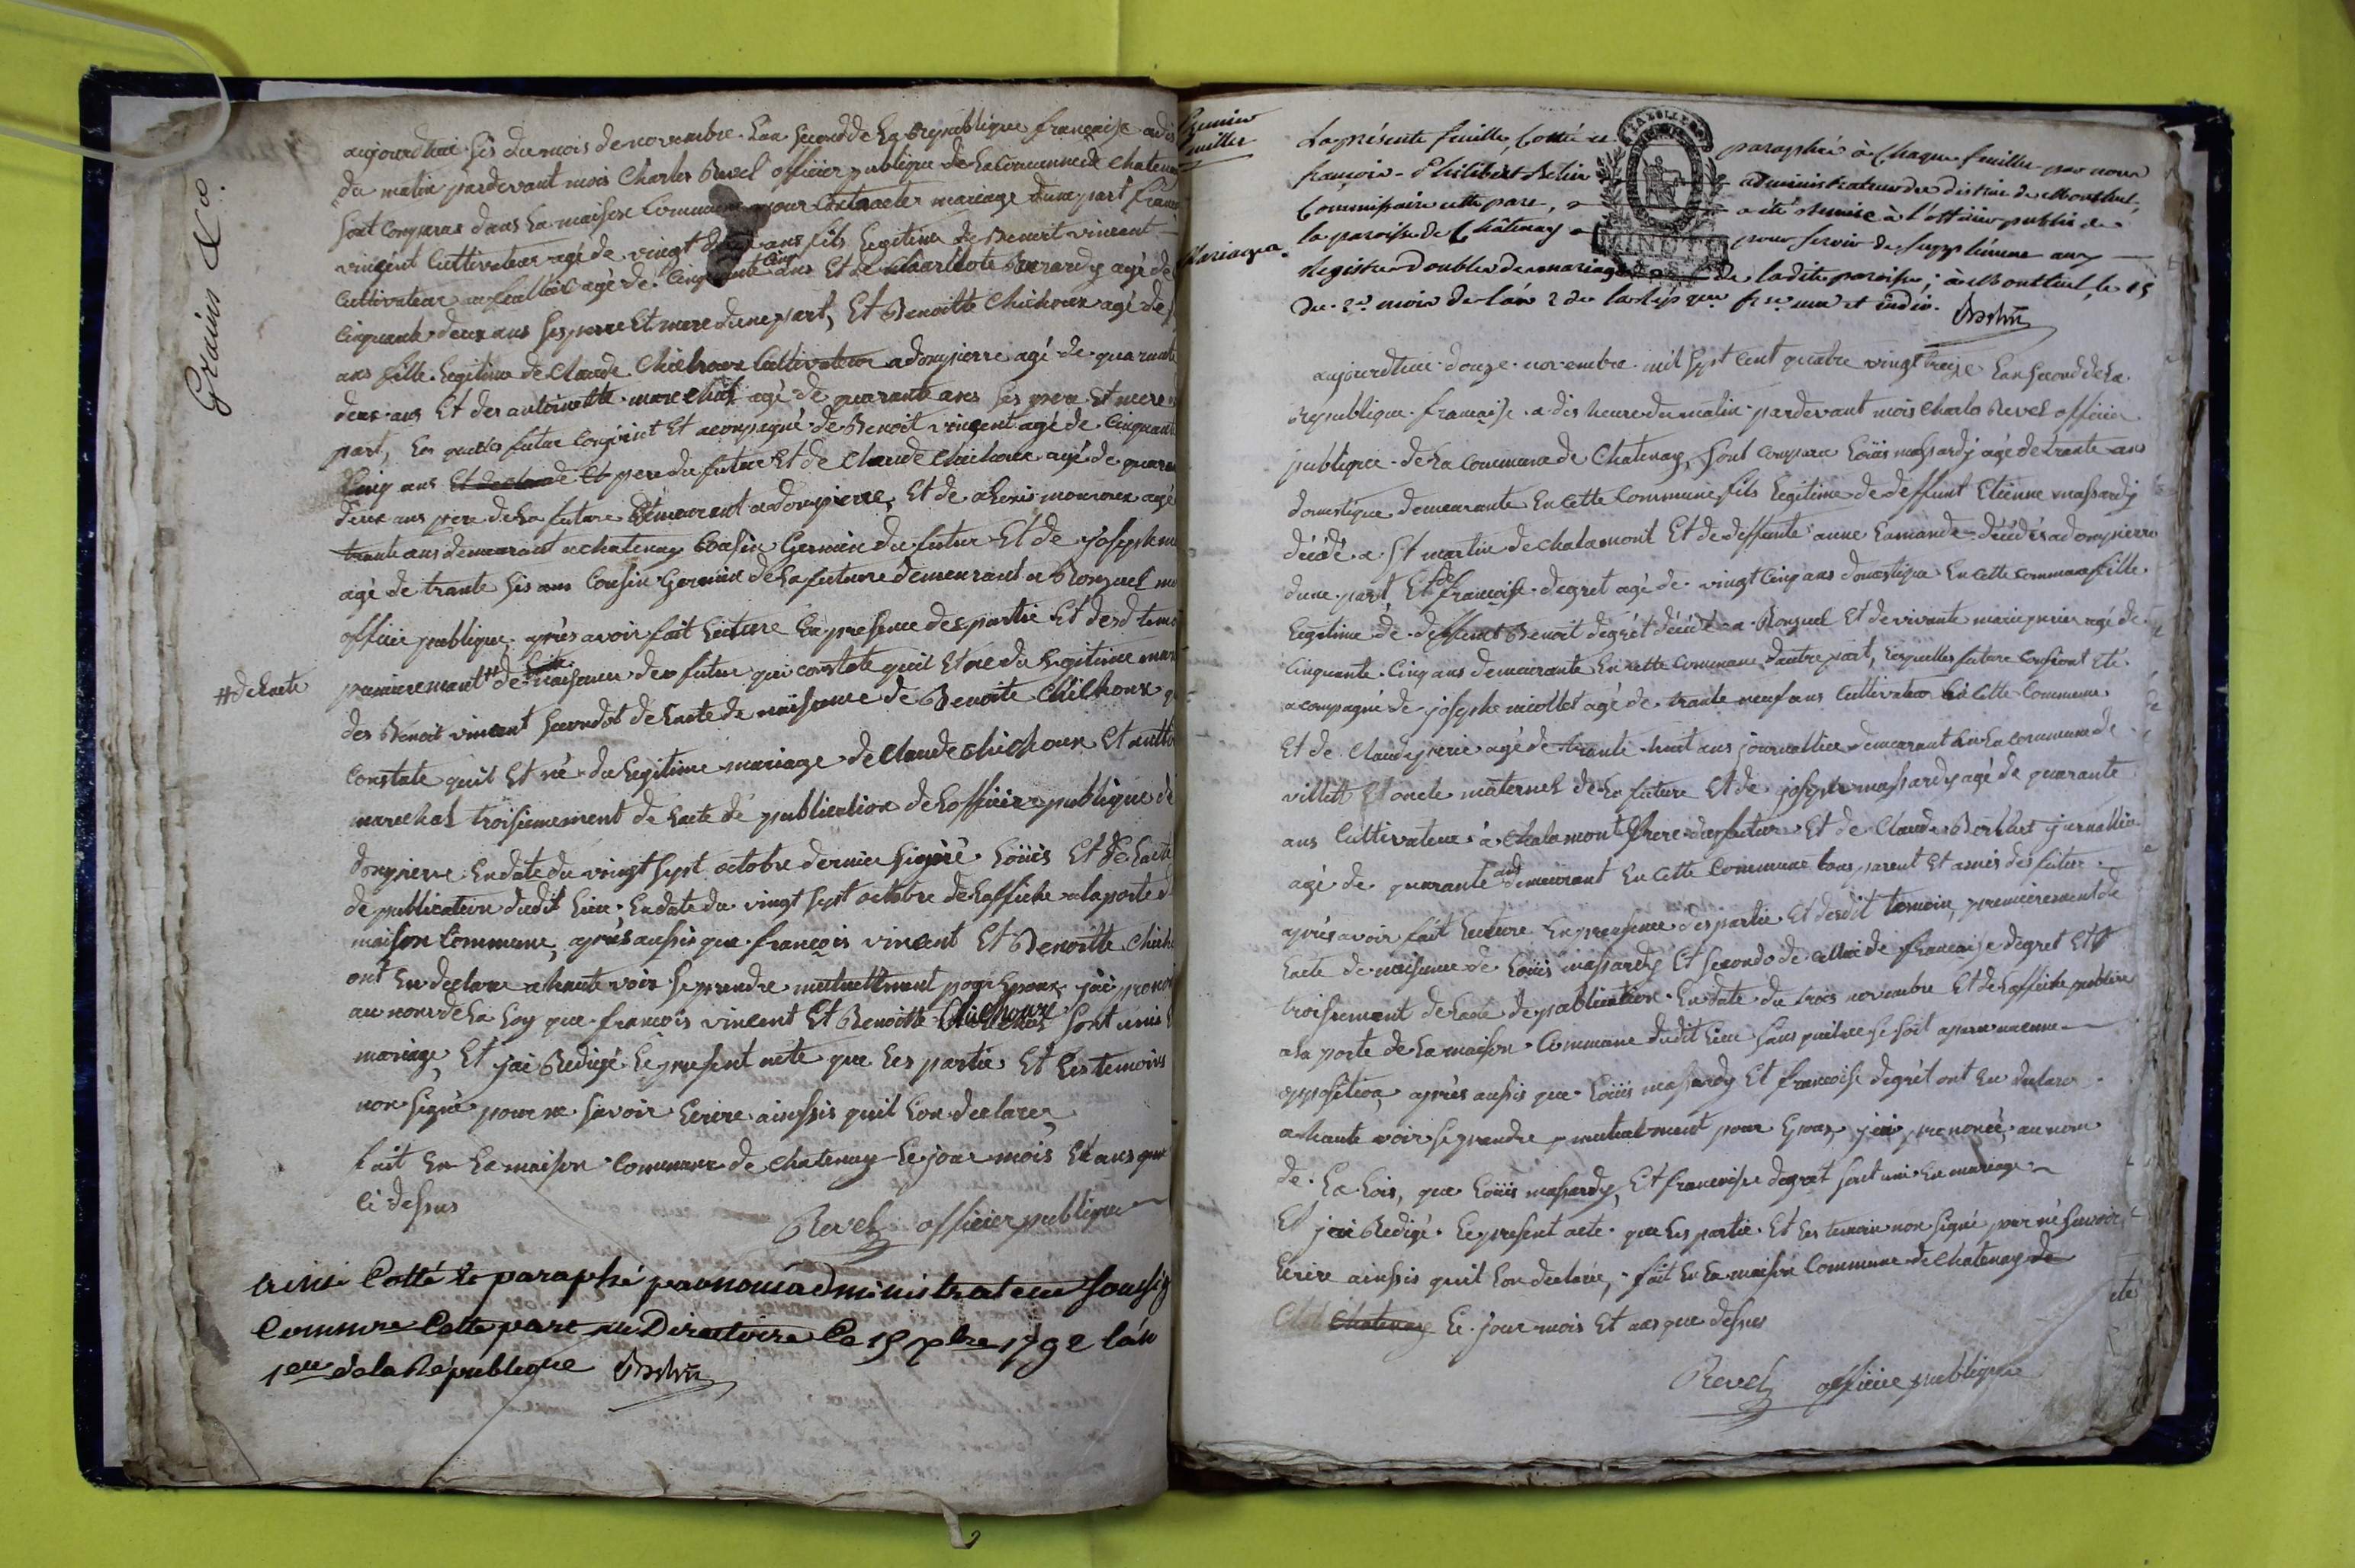 aujourdhui sis du mois de novembre lan second de la republique française a dis
du matin pardevant mois Charles Revel officier publique de la Commune de Chatenay
sont comparus dans la maison Commune pour Contracter mariage dune part francois
vincent Cultivateur agé de vingt ans fils legitime de Benoit vincent
Cultivateur agé de Cinquante Cinq ans Et de Charlote Berardy agé de
Cinquante deux ans ses pere Et mere dune part, Et Benoitte Chichoux agé de
ans fille legitime de Claude Chichoux Cultivateur a dompierre agé de quarante
deux ans Et des antoinette marechal agé de quarante ans ses pere Et mere
part, les quelles futur Conjoint Et acompagné de Benoit vincent agé de Cinquante
Cinq ans Et de Claude Et pere du futur Et de Claude Chichoux agé de quarante
deux ans pere de la future demeurant a dompierre, Et de aLexis monroux agé
trante ans demeurant a chatenay Cousin Germin du futur Et de joseph
agé de trante sis ans Cousin Germin de la future demeurant a Ronzuel
officier publique, après avoir fait lecture En presence des partie Et desd temoins
#de lacte
premierement # de naisance des futur qui constate quil Et né du legitime
des Benoit vincent secondot de lacte de naissance de Benoite Chichoux
Constate quil Et né du legitime mariage de Claude chichoux Et
marechal troisiemement de lacte de publication de lofficier publique de
dompierre En date du vingt sept octobre dernier signé Loüis Et de lacte
de publication dudit lieu, En date du vingt sept octobre de laffiche a la porte
maison Commune, après aussis que francois vincent Et Benoitte Chichoux
ont En declare a haute voix se prendre mutuellement pour Epoux jai prononcé
au nom de la loy que francois vincent Et Benoitte Chichoux sont unis
mariage, Et jai Redigé le present acte que les partie Et les temoins
non signé pour ne savoir Ecrire ainssis quil lon declare,
fait En la maison Commune de chatenay le jour mois Et ans que
ci dessus
Revel officier publique
Cotté Et paraphé par nous administrateur soussigné
Commre Cette part du Directoire Ce 15 xbre 1792 lan
1er de la République
premier
feuillet
mariages
La présente feuille Cottée et paraphée à Chaque feuillet par nous
françois-Philibert administrateur du district de Montluel,
Commissaire cette part, a été Remise à l'officier public de
la paroisse de Châtenay pour servir de supplément aux
Registres doubles des mariages de ladite paroisse; à Montluel, le 15
du 2e mois de l'an 2 de la Rép que fr se une et indiv.
aujourdhui douze novembre mil sept Cent quatre vingt treize lan second de la
Republique francaise a dis heure du matin pardevant mois Charles Revel officier
publique de la Commune de Chatenay, sont Comparu Loüis massardy agé de trante ans
domestique demeurante En cette Commune fils legitime de deffunt Etienne massardy
décédé a St martin de chalamont Et de deffunte anne Lamande décédés a dompierre
dune part Et de francoise degret agé de vingt Cinq ans domestique En cette Commune fille
legitime de deffunt Benoit degret décédé a Ronzuel Et de vivante marie perier agé de
Cinquante Cinq ans demeurante En cette Commune dautre part, lesquelles future Conjoint Eté
acompagné de joseph nicollet agé de trante neuf ans Cultivateur En cette Commune
Et de Claude perier agé de trante huit ans journallier demeurant En la Commune de
villett Et oncle maternel de la future Et de joseph massardy agé de quarante
ans Cultivateur à chalamont frere du futur Et de Claude journallier
agé de quarante ans demeurant En cette Commune tous parent Et amis des futur
après avoir fait lecture En presence des partie Et desdit temoin, premierement de
lacte de naisance de Loüis massardy Et secondo de celluide francaise degret Et
troisiement de lacte de publication En date du trois novembre Et de laffiche publiee
a la porte de la maison Commune dudit lieu sans quil ne se soit aparu aucunne
opposition, après aussis que Loüis massardy Et francoise degrèt ont En declare
a haute voix se prendre mutualment pour Epoux, jai prononcé au nom
de La Lois, que Loüis massardy, Et francoise degret sont unis En mariage
Et jai Redigé le present acte que les partie Et les temoin non signé pour ne savoir
Ecrire ainssis quil lon declarée, fait En la maison Commune de Chatenay de
Chatenay le jour mois Et ans que dessus
Revel officier publique